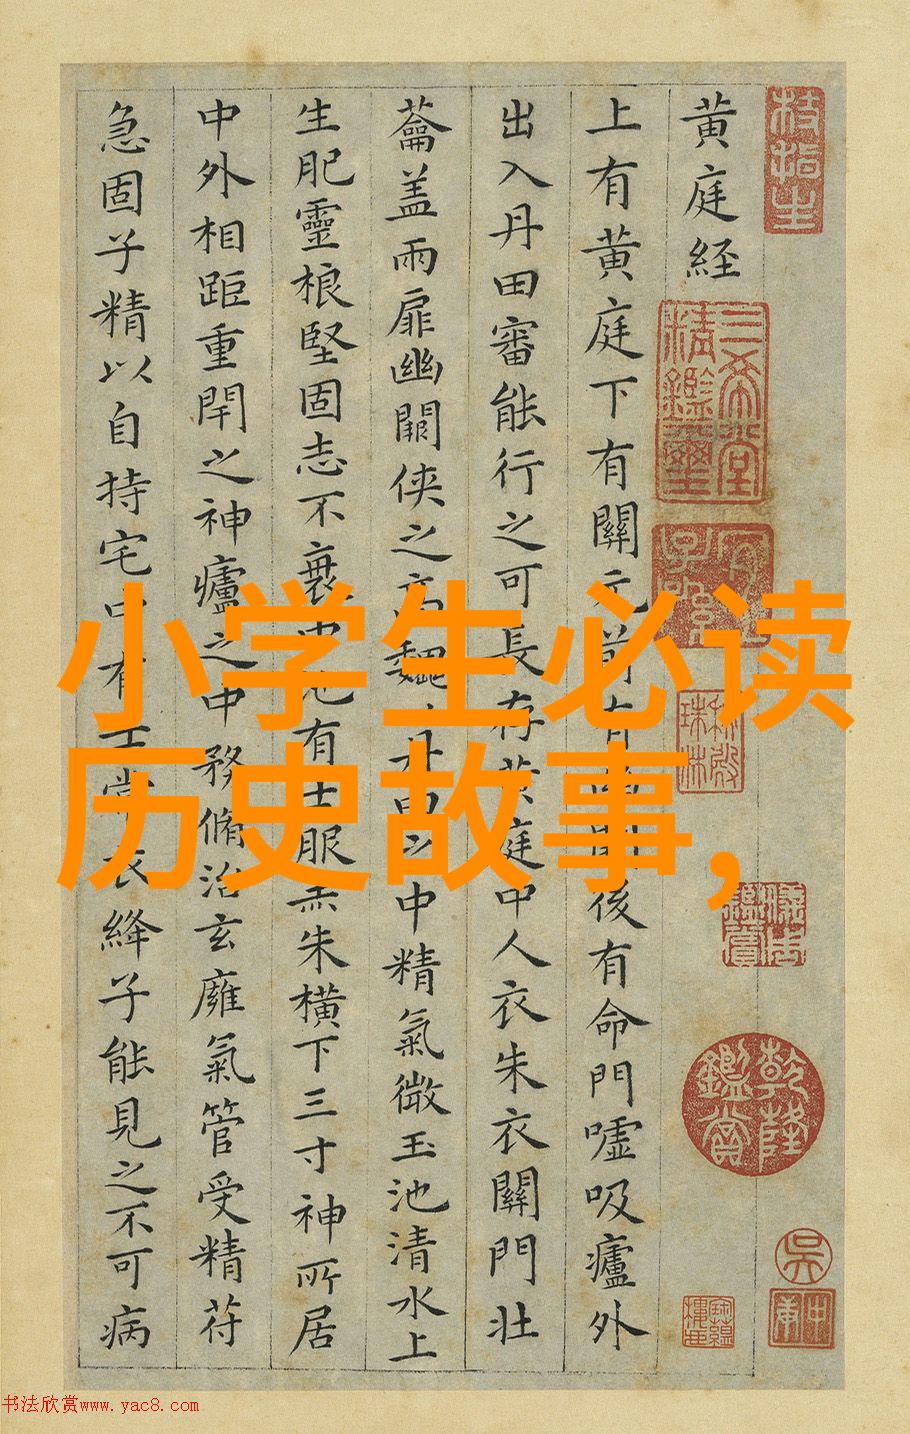 小学生必读
历史故事,
枝指生
黄庭経
三希堂精鑑璽
乾隆鑑賞
吳
上有黄庭下有關元前有幽闕後有命門嘘吸廬外
出入丹田審能行之可長存黄庭中人衣朱衣關門壯
蘥盖兩扉幽闕侠之高巍丹田之中精氣微玉池清水上
生肥靈根堅固志不衰中池有士服赤朱横下三寸神所居
中外相距重閇之神廬之中務脩治玄廱氣管受精苻
急固子精以自持宅中有士常衣絳子能見之不可病
书法欣赏www.yac8.com